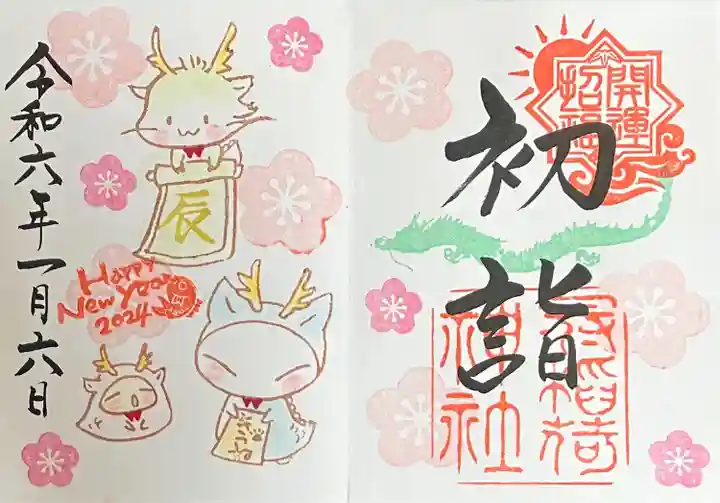 開運
招福
初詣
神社
令和六年一月六日
辰
Happy
New Year
2024